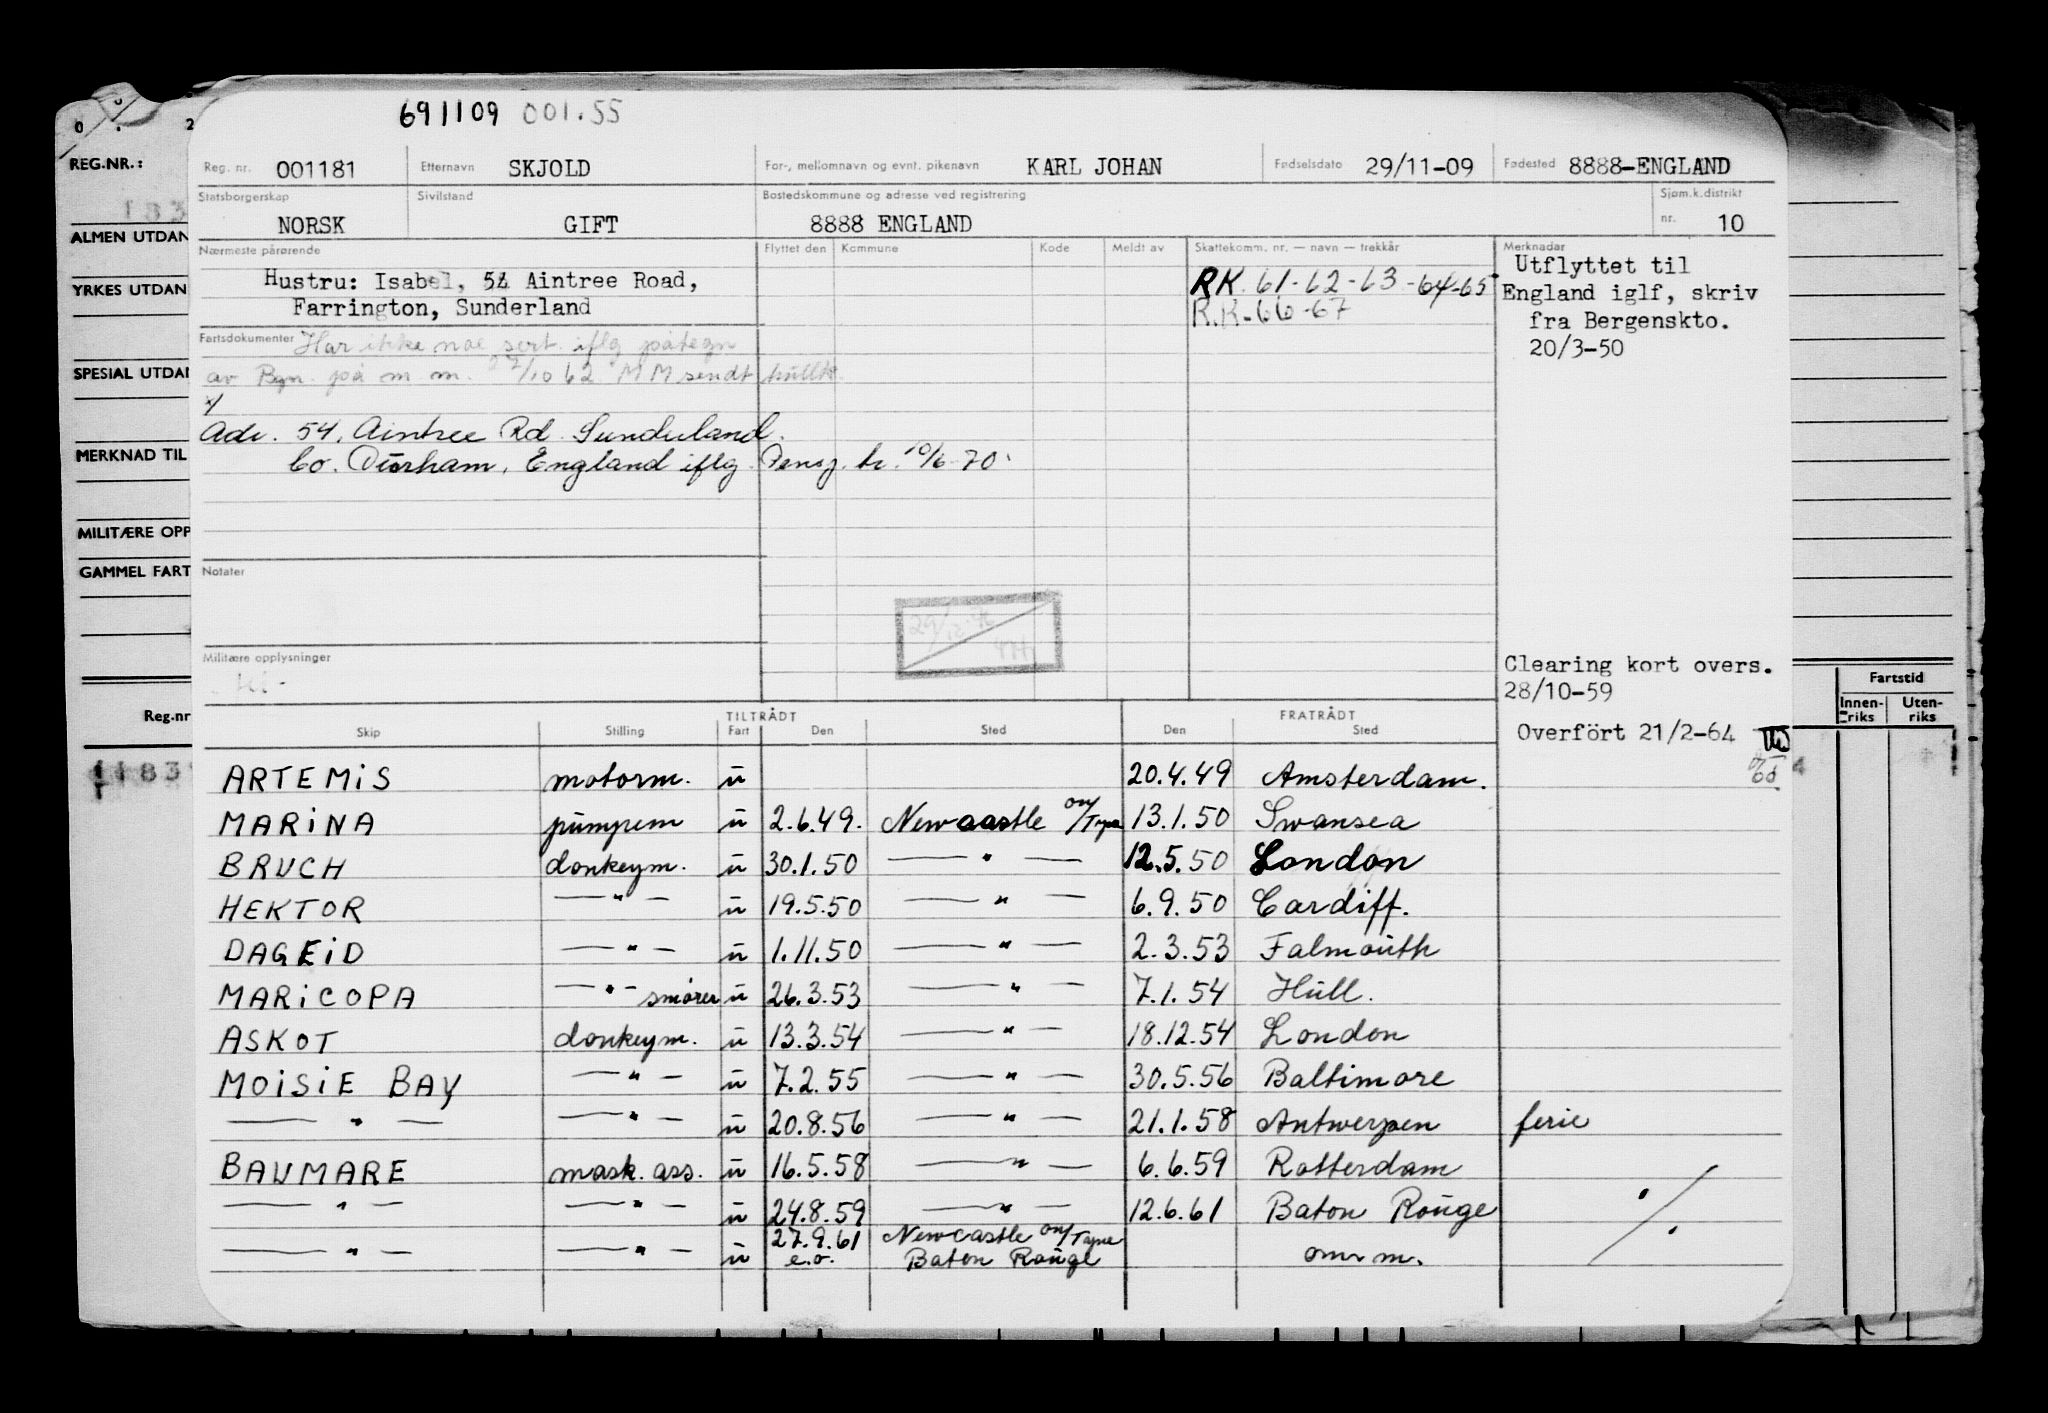 691109 001.55
REG.NR.:
ALMEN UTDAN
YRKES UTDAN
SPESIAL UTDAN
MERKNAD TIL
MILITÆRE OPP
GAMMEL FART
Reg.nr
Reg. nr. 001181 Etternavn SKJOLD For-, mellomnavn og evnt. pikenavn KARL JOHAN Fødselsdato 29/11-09 Fødested 8888-ENGLAND
Statsborgerskap Sivilstand Bostedskommune og adresse ved registrering Sjøm.k.distrikt
NORSK GIFT 8888 ENGLAND nr. 10
Nærmeste pårørende Flyttet den Kommune Kode Meldt av Skattekomm. nr. — navn — trekkår Merknader
Hustru: Isabel, 54 Aintree Road,
Farrington, Sunderland
RK. 61-62-63-64-65
R.K-66-67
Utflyttet til
England iglf, skriv
fra Bergenskto.
20/3-50
Fartsdokumenter Har ikke noe sert. iflg påtegn
av på m.m. 22/10 62 MM sendt
Adr. 54, Aintree Rd. Sunderland.
Co. Durham, England iflg. Pensj. tr. 10/6-70.
Notater
Militære opplysninger
Clearing kort overs.
28/10-59
Overfört 21/2-64
Fartstid
Innenriks Utenriks
TILTRÅDT FRATRÅDT
Skip Stilling Fart Den Sted Den Sted
ARTEMIS motorm. u 20.4.49 Amsterdam.
MARINA pumpem u 2.6.49. Newcastle on/Tyne 13.1.50 Swansea
BRUCH donkeym. u 30.1.50 — " — 12.5.50 London
HEKTOR — " — u 19.5.50 — " — 6.9.50 Cardiff.
DAGEID — " — u 1.11.50 — " — 2.3.53 Falmouth
MARICOPA — " — smører u 26.3.53 — " — 7.1.54 Hull.
ASKOT donkeym. u 13.3.54 — " — 18.12.54 London
MOISIE BAY — " — u 7.2.55 — " — 30.5.56 Baltimore
— " — — " — u 20.8.56 — " — 21.1.58 Antwerpen ferie
BAUMARE mask. ass. u 16.5.58 — " — 6.6.59 Rotterdam
— " — — " — u 24.8.59 — " — 12.6.61 Baton Rouge
— " — — " — u 27.9.61 Newcastle on/Tyne
e.o. Baton Rouge omr m.